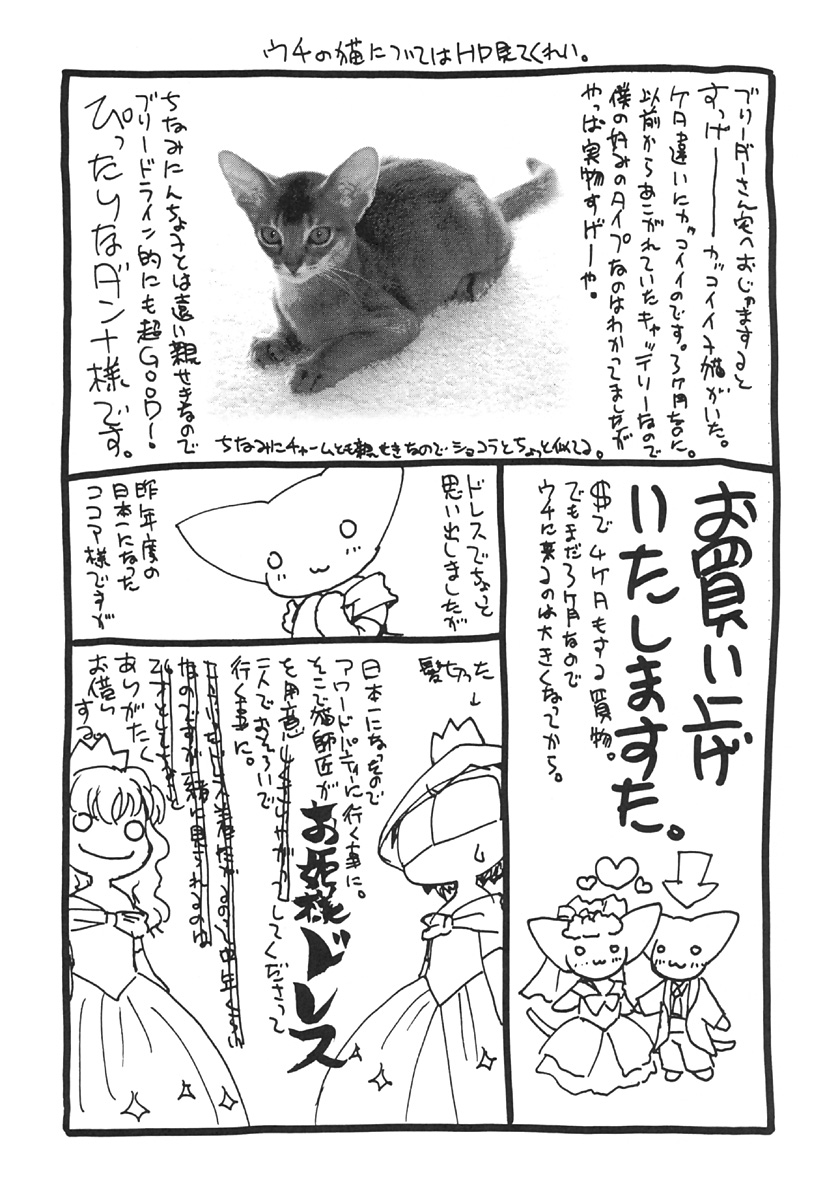 ウチの猫についてはHP見てくれい。
ブリーダーさん宅へおじゃますると
すっげーーーーーガッコイイ子猫がいた。
ケタ違いにガッコイイのです。3ケ月なのに。
以前からあこがれていたキャッテリーなので
僕の好みのタイプなのはわかってましたが
やっぱ実物すげーや。
ちなみにんちょさとは遠い親せきなので
ブリードライン的にも超GOOD！
ぴったりなダンナ様です。
ちなみにチャームとも親せきなのでショコラとちょっと似てる。
お買い上げ
いたしますた。
$で4ケタもする買物。
でもまだ3ケ月なので
ウチに来るのは大きくなってから。
ドレスでちょっと
思い出しましたが
昨年度の
日本一になった
ココア様ですが
髪切った
日本一になったので
アワードパーティーに行く事に。
そこで猫師匠が
お姫様ドレス
を用意しくさりやがってしてくださって
二人でおそろいで
行く事に。
ありがたく
お借りする。